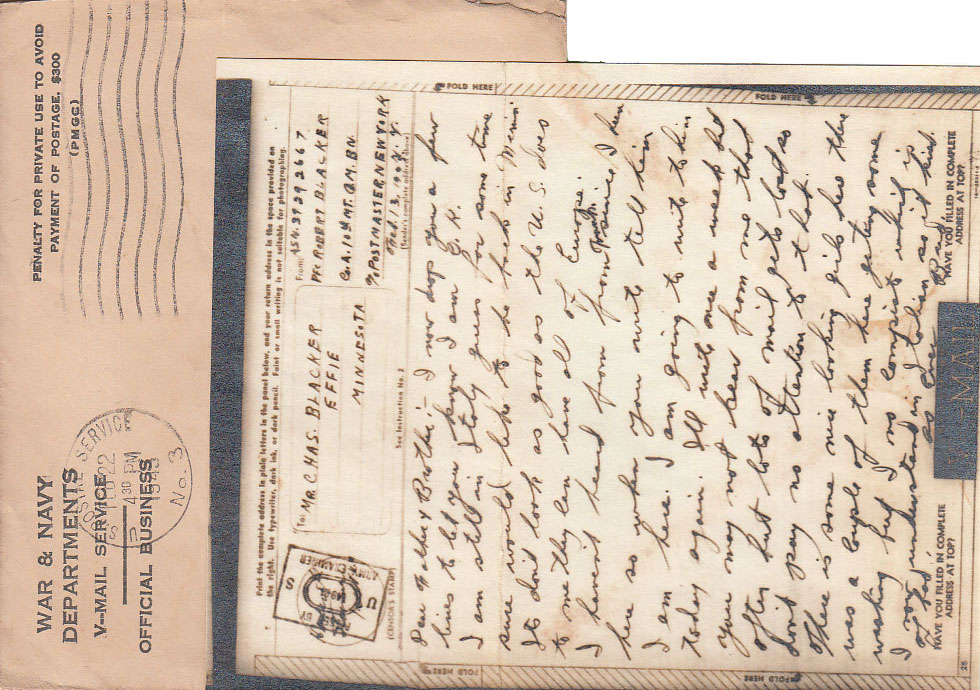 PENALTY FOR PRIVATE USE TO AVOID
PAYMENT OF POSTAGE, $300
(PMGC)
WAR & NAVY
DEPARTMENTS
V-MAIL SERVICE
OFFICIAL BUSINESS
POSTAL SERVICE
22
4 30 PM
1943
No. 3
FOLD HERE
FOLD HERE
Print the complete address in plain letters in the panel below, and your return address in the space provided on
the right. Use typewriter, dark ink, or dark pencil. Faint or small writing is not suitable for photographing.
To: MR. CHAS. BLACKER
EFFIE
MINNESOTA
From: ASN. 37392667
Pvt ROBERT BLACKER
Co. A. 10th MT. Q.M. BN.
% POSTMASTER, NEW YORK
N.Y.
See Instruction No. 2
(CENSOR'S STAMP)
U S
Dear Father & Brother:- I now drop you a few
lines to let you know I am O.K.
I am still in Italy guess for some time
since would like to be back in Minn
It don't look as good as the U.S. does
to me they can have all of Europe.
I haven't heard from from Francis
here so when you write tell him
I am here. I am going to write to him
today again. I'll write once a week but
you may not hear from me that
often but lots of mail gets lost so
don't pay no attention to that.
There is some nice looking girls here
was a couple of them here getting some
washing but I no compist which is
I now understand in Italian as it kind
of hot. as ever Bud.
HAVE YOU FILLED IN COMPLETE
ADDRESS AT TOP?
V-MAIL
HAVE YOU FILLED IN COMPLETE
ADDRESS AT TOP?
FOLD HERE
FOLD HERE